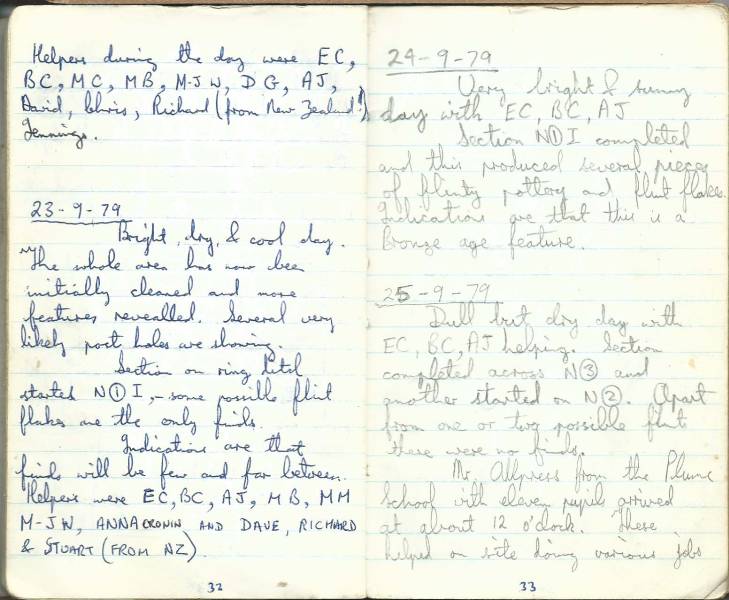 Helpers during the day were EC,
BC, MC, MB, M-JW, DG, AJ,
David, Chris, Richard (from New Zealand!)
Jennings.
23-9-79
Bright, dry, & cool day.
The whole area has now been
initially cleaned and more
features revealled. Several very
likely post holes are showing.
Section on ring ditch
started N① I, - some possible flint
flakes are the only finds.
Indications are that
finds will be few and far between.
Helpers were EC, BC, AJ, MB, MM
M-JW, ANNA CRONIN AND DAVE, RICHARD
& STUART (FROM NZ).
32
24-9-79
Very bright & sunny
day with EC, BC, AJ
Section N① I completed
and this produced several pieces
of flinty pottery and flint flakes.
Indications are that this is a
Bronze age feature.
25-9-79
Dull but dry day with
EC, BC, AJ helping. Section
completed across N③ and
another started on N②. Apart
from one or two possible flint
there were no finds.
Mr. Allpress from the Plume
School with eleven pupils arrived
at about 12 o'clock. These
helped on site doing various jobs
33